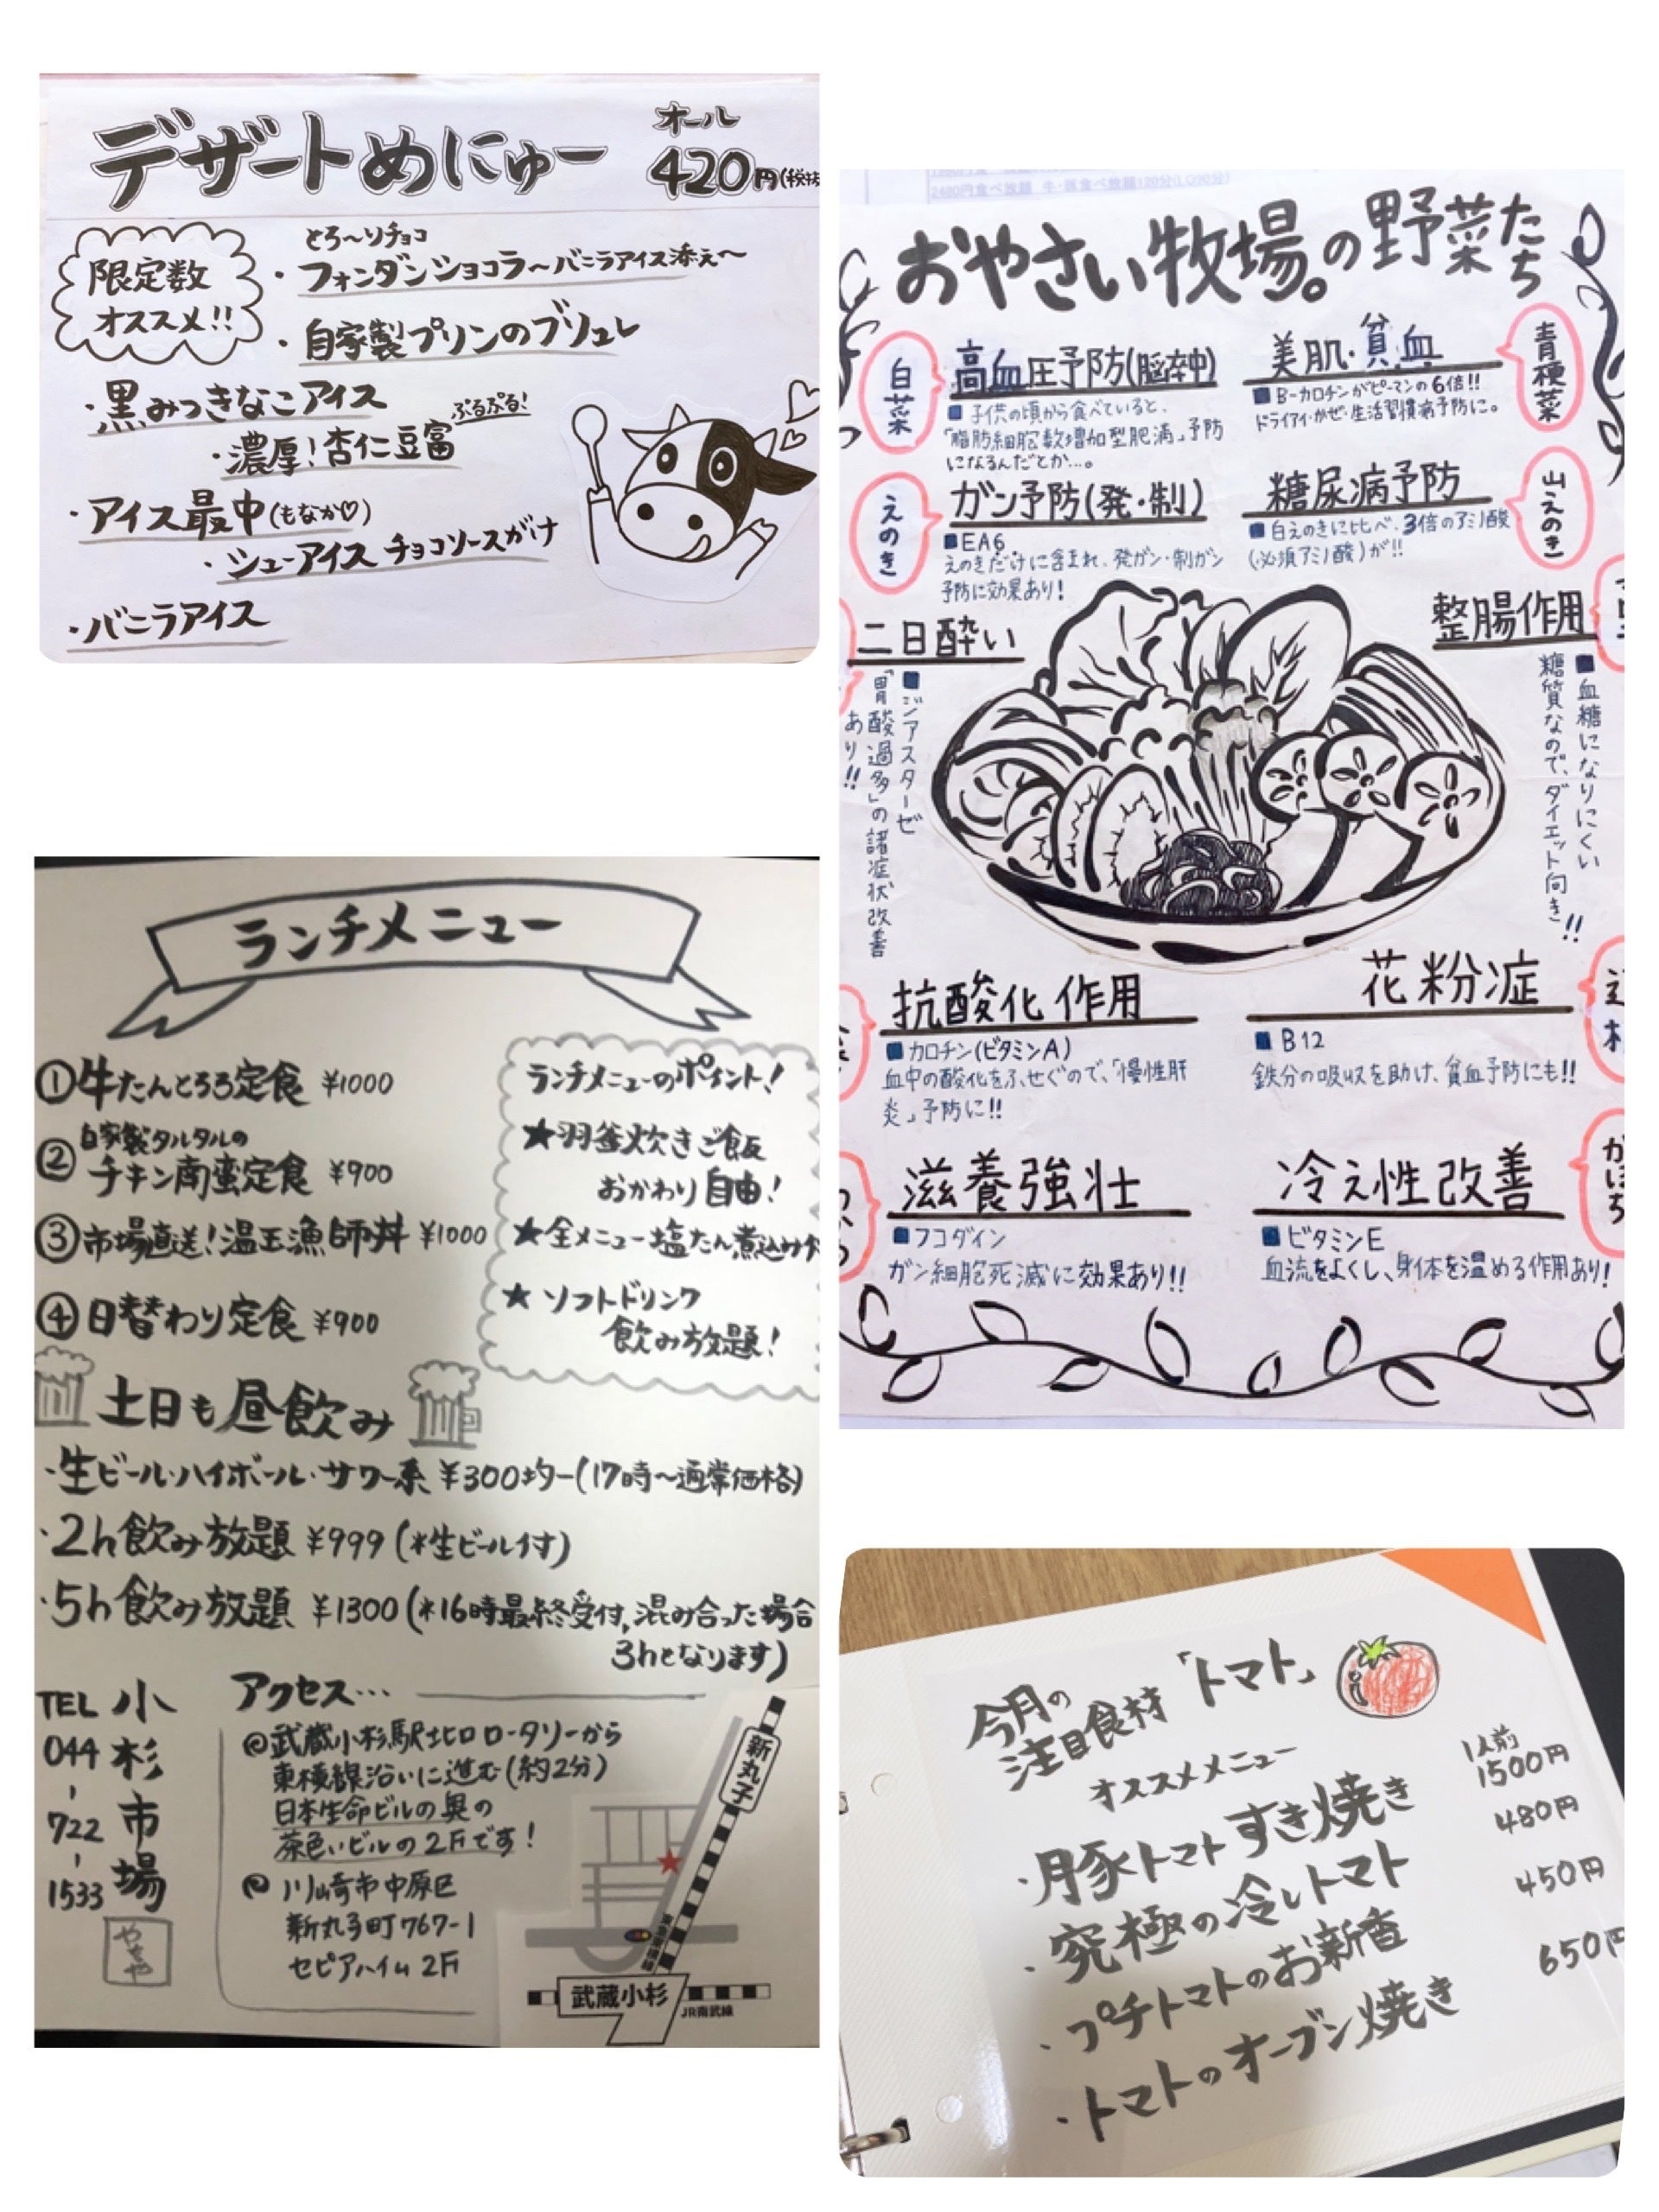 デザートめにゅー
オール
420円(税抜
限定数
オススメ!!
とろ～りチョコ
・フォンダンショコラ～バニラアイス添え～
・自家製プリンのブリュレ
・黒みつきなこアイス
ぷるぷる!
・濃厚!杏仁豆富
・アイス最中(もなか♡)
・シューアイス チョコソースがけ
・バニラアイス
2480円食べ放題 牛・豚食べ放題120分(LO90分)
おやさい牧場。の野菜たち
白菜
高血圧予防(脳卒中)
■子供の頃から食べていると、
「脂肪細胞数増加型肥満」予防
になるんだとか…。
美肌・貧血
青梗菜
■B-カロチンがピーマンの6倍!!
ドライアイ・かぜ・生活習慣病予防に。
えのき
ガン予防(発・制)
■EA6
えのきだけに含まれ、発ガン・制ガン
予防に効果あり!
糖尿病予防
山えのき
■白えのきに比べ、3倍のアミノ酸
(必須アミノ酸)が!!
二日酔い
■ジアスターゼ
「胃酸過多」の諸症状改善
あり!!
整腸作用
■血糖になりにくい
糖質なので、ダイエット向き!!
抗酸化作用
■カロチン(ビタミンA)
血中の酸化をふせぐので、「慢性肝
炎」予防に!!
花粉症
■B12
鉄分の吸収を助け、貧血予防にも!!
滋養強壮
■フコダイン
ガン細胞死滅に効果あり!!
冷え性改善
■ビタミンE
血流をよくし、身体を温める作用あり!
ランチメニュー
①牛たんとろろ定食 ¥1000
自家製タルタルの
②チキン南蛮定食 ¥900
③市場直送!温玉漁師丼 ¥1000
④日替わり定食 ¥900
ランチメニューのポイント!
★羽釜炊きご飯
おかわり自由!
★全メニュー塩たん煮込み付
★ソフトドリンク
飲み放題!
土日も昼飲み
・生ビール・ハイボール・サワー系 ¥300均一(17時～通常価格)
・2h飲み放題 ¥999(*生ビール付)
・5h飲み放題 ¥1300(*16時最終受付,混み合った場合
3hとなります)
TEL
044
-
722
-
1533
小杉市場
アクセス…
@武蔵小杉駅北口ロータリーから
東横線沿いに進む(約2分)
日本生命ビルの奥の
茶色いビルの2Fです!
@川崎市中原区
新丸子町767-1
セピアハイム2F
新丸子
東急東横線
武蔵小杉
JR南武線
今月の
注目食材「トマト」
オススメメニュー
1人前
・豚トマトすき焼き 1500円
・究極の冷しトマト 480円
・プチトマトのお新香 450円
・トマトのオーブン焼き 650円